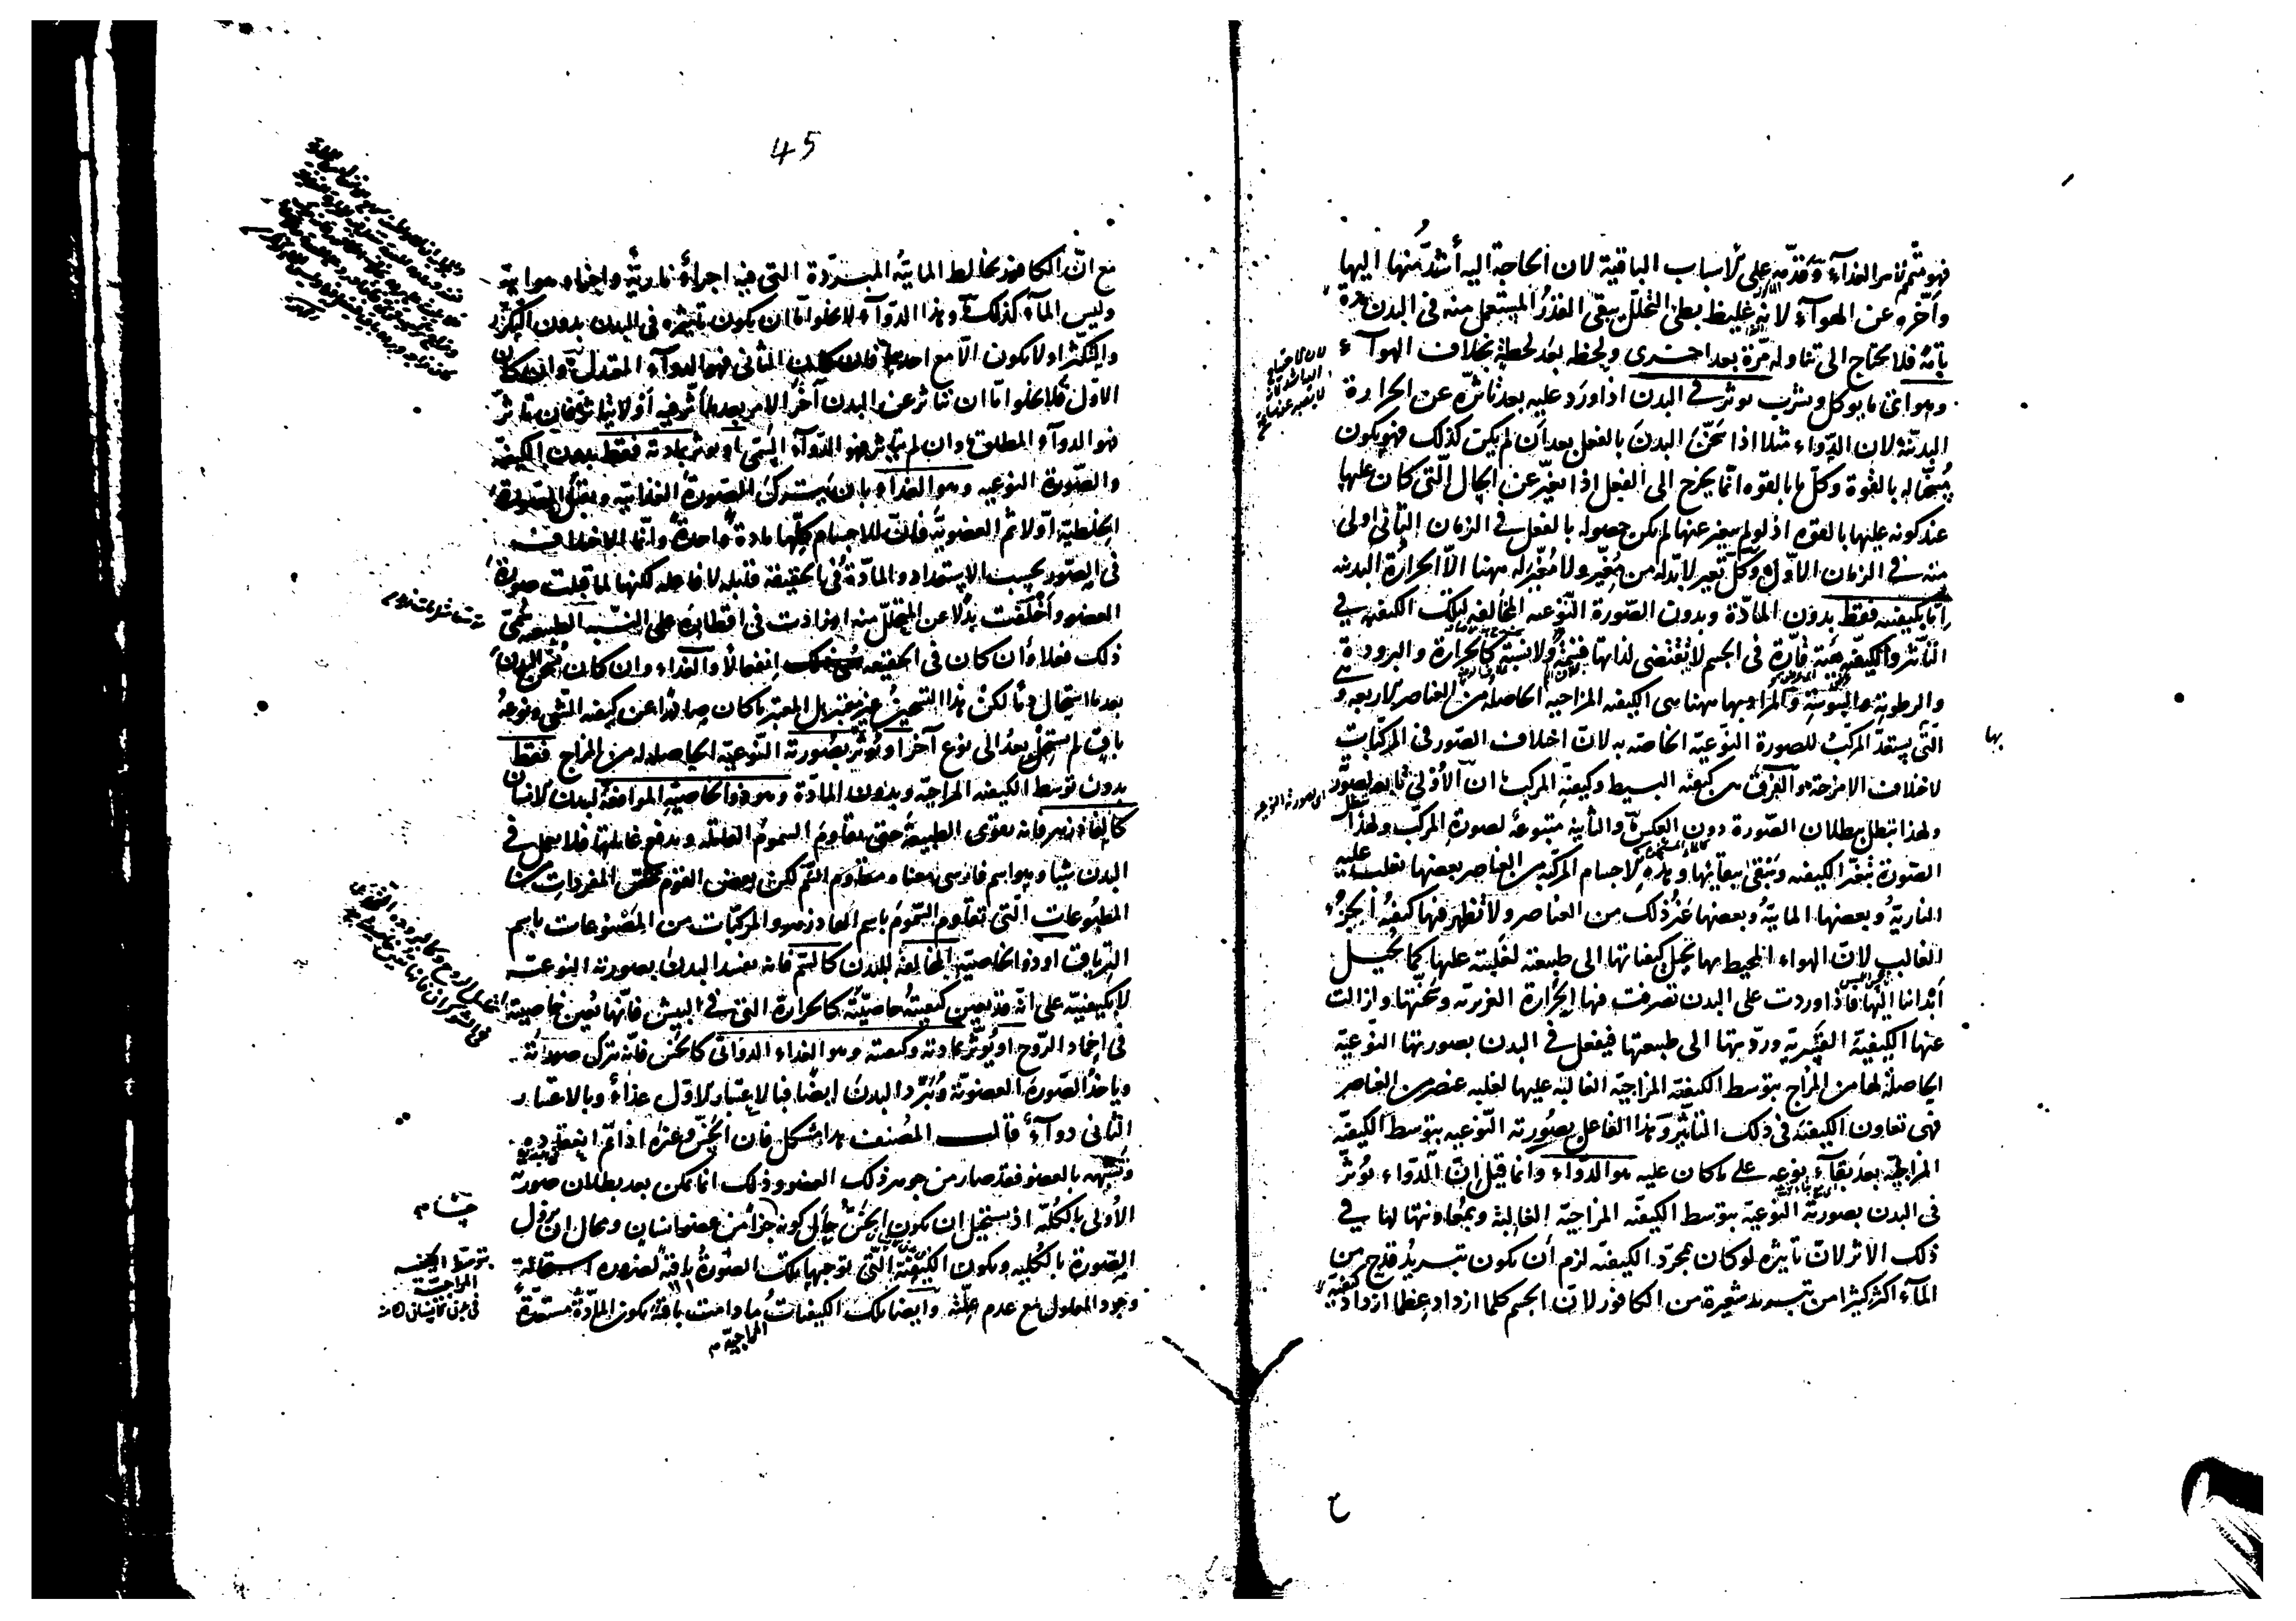 فهو متمم لامر الغذاء وقدمه على الاسباب الباقية لان الحاجة اليه أشد منها اليها
واخره عن الهواء لانه غليظ بطئ التحلل يبقى القدر المستعمل منه فى البدن مدة
تامة فلا يحتاج الى تناوله مرة بعد اخرى ولحظة بعد لحظة بخلاف الهواء
وهو ان ما يوكل ويشرب يوثر فى البدن اذا ورد عليه بعد تاثره عن الحرارة
البدنية لان الدواء مثلا اذا سخن البدن بالفعل بعد ان لم يكن كذلك فهو يكون
مسخنا له بالقوة وكل ما بالقوه انما يخرج الى الفعل اذا تغير عن الحال التى كان عليها
عند كونه عليها بالقوه اذ لو لم يتغير عنها لم يكن حصوله بالفعل فى الزمان الثانى اولى
منه فى الزمان الاول وكل تغير لا بد له من مغير ولا مغير له ههنا الا الحرارة البدنيه
اما بكيفيته فقط بدون المادة وبدون الصورة النوعيه المخالفه لتلك الكيفيه فى
التأثير والكيفيه هيئة قارة فى الجسم لا تقتضى لذاتها قسمة ولا نسبة كالحرارة والبرودة
والرطوبة واليبوسة والمراد بها ههنا هى الكيفيه المزاجيه الحاصله من العناصر الاربعه و
التى يستعد المركب للصورة النوعية الخاصه به لان اختلاف الصور فى المركبات
لاختلاف الامزجة والفرق بين كيفيه البسيط وكيفية المركب ان الاولى تابعه لصورة
ولهذا تبطل ببطلان الصورة دون العكس والثانية متبوعة لصورة المركب ولهذا
الصورة بتغير الكيفيه وتبقى ببقائها وهذه الاجسام المركبه من العناصر بعضها تغلب عليه
النارية وبعضها المائية وبعضها غير ذلك من العناصر ولا تظهر فيها كيفية الجزء
الغالب لان الهواء المحيط بها يحيل كيفياتها الى طبيعته لغلبته عليها كما يحيل
أبداننا اليها فاذا وردت على البدن تصرفت فيها الحرارة الغريزية وسخنتها وازالت
عنها الكيفية القسرية وردتها الى طبيعتها فيفعل فى البدن بصورتها النوعية
الحاصلة لها من المزاج بتوسط الكيفية المزاجية الغالبه عليها لغلبه عنصر من العناصر
فهى تعاون الكيفية فى ذلك التاثير وهذا الفاعل بصورته النوعيه بتوسط الكيفية
المزاجية بعد بقاء نوعه على ما كان عليه هو الدواء وانما قيل ان الدواء يوثر
فى البدن بصورته النوعية بتوسط الكيفيه المزاجية الغالبة وبمعاونتها لها فى
ذلك الاثر لان تاثيره لو كان بمجرد الكيفيه لزم أن يكون تبريد قدح من
الماء اكثر كثيرا من تبريد شعيرة من الكافور لان الجسم كلما ازداد عظما ازداد كيفية
بها
45
مع ان الكافور يخالط المائية المبردة التى فيه اجزاء نارية واجزاء هوائية
وليس الماء كذلك وهذا الدواء لا يخلو اما ان يكون تاثيره فى البدن بدون التكرر
والتكثر او لا يكون الا مع احدهما فان كان الثانى فهو الدواء المعتدل وان كان
الاول فلا يخلو اما ان يتاثر عن البدن آخر الامر بعد ما أثر فيه أو لا يتاثر فان تاثر
فهو الدواء المطلق وان لم يتاثر فهو الدواء السمى او يوثر بمادته فقط بدون الكيفية
والصورة النوعيه وهو الغذاء بان يترك الصورة الغذائية ويقبل الصورة
الخلطية اولا ثم العضوية فان للاجسام كلها مادة واحدة وانما الاختلاف
فى الصور بحسب الاستعداد والمادة فى الحقيقة قابله لا فاعله لكنها لما قبلت صورة
العضو وأخلفت بدلا عن المتحلل منه او زادت فى اقطاره على النسبه الطبيعيه سمى
ذلك فعلا وأن كان فى الحقيقه انفعالا والغذاء وان كان يسخن البدن
بعد ما استحال دما لكن هذا التسخين غير معتبر بل المعتبر ما كان صادرا عن كيفيه الشئ ونوعه
باق لم يستحل بعد الى نوع آخر او يؤثر بصورته النوعية الحاصله له من المزاج فقط
بدون توسط الكيفيه المزاجية وبدون المادة وهو ذو الخاصية الموافقة لبدن الانسان
كالفادزهر فانه يقوى الطبيعة حتى يقاوم السموم القاتله ويدفع غائلتها فلا تعمل فى
البدن شيئا وهو اسم فارسى معناه مقاوم السم لكن بعض القوم خص المفردات من
المطبوعات التى تقاوم السموم باسم الفادزهر والمركبات من المصنوعات باسم
الترياق او ذو الخاصية المخالفة للبدن كالسم فانه يفسد البدن بصورته النوعية
لا بكيفيته على انه قد يعين كيفيته خاصيته كالحرارة التى فى البيش فانها تعين خاصيته
فى اخماد الروح او يوثر بمادته وكيفيته وهو الغذاء الدوائى كالخس فانه يترك صورته
وياخذ الصورة العضوية ويبرد البدن ايضا فبالاعتبار الاول غذاء وبالاعتبار
الثانى دواء قال المصنف هذا مشكل فان الخس وغيره اذا تم انعقاده
وتشبهه بالعضو فقد صار من جوهر ذلك العضو وذلك انما يمكن بعد بطلان صورته
الأولى بالكلية اذ يستحيل ان يكون الخس حال كونه جزأ من عضو انسان ومحال ان يزول
الصورة بالكليه ويكون الكيفية التى توجبها تلك الصورة باقية لضرورة استحالة
وجود المعلول مع عدم علته وأيضا تلك الكيفيات ما دامت باقية يكون المادة مستعدة
المزاجية
بتوسط الكيفيه
المزاجية